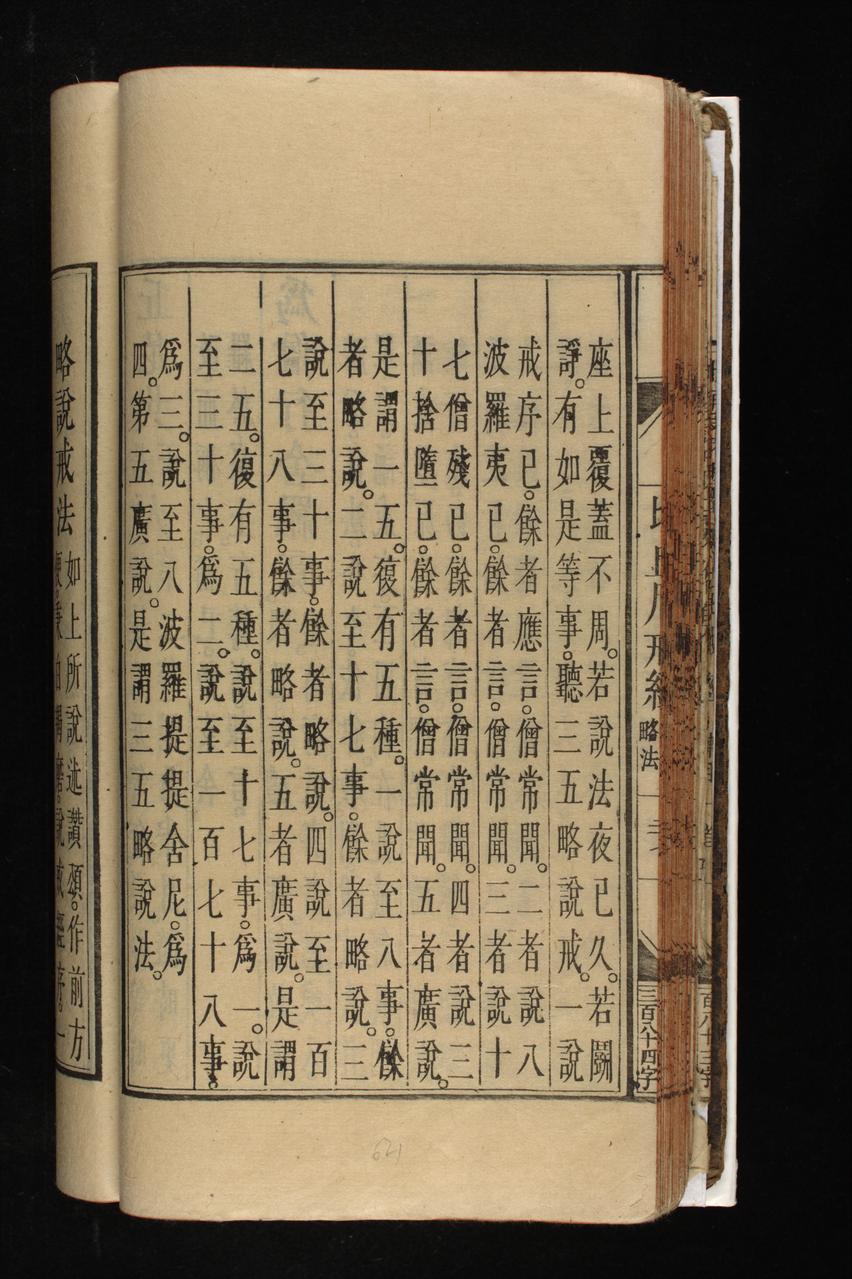 略法
三百八十四字
座上覆蓋不周。若說法夜已久。若鬪
諍。有如是等事。聽三五略說戒。一說
戒序已。餘者應言。僧常聞。二者說八
波羅夷已。餘者言。僧常聞。三者說十
七僧殘已。餘者言。僧常聞。四者說三
十捨墮已。餘者言。僧常聞。五者廣說。
是謂一五。復有五種。一說至八事。餘
者略說。二說至十七事。餘者略說。三
說至三十事。餘者略說。四說至一百
七十八事。餘者略說。五者廣說。是謂
二五。復有五種。說至十七事。爲一。說
至三十事。爲二。說至一百七十八事。
爲三。說至八波羅提提舍尼。爲
四。第五廣說。是謂三五略說法。
略說戒法
如上所說讚頌。作前方